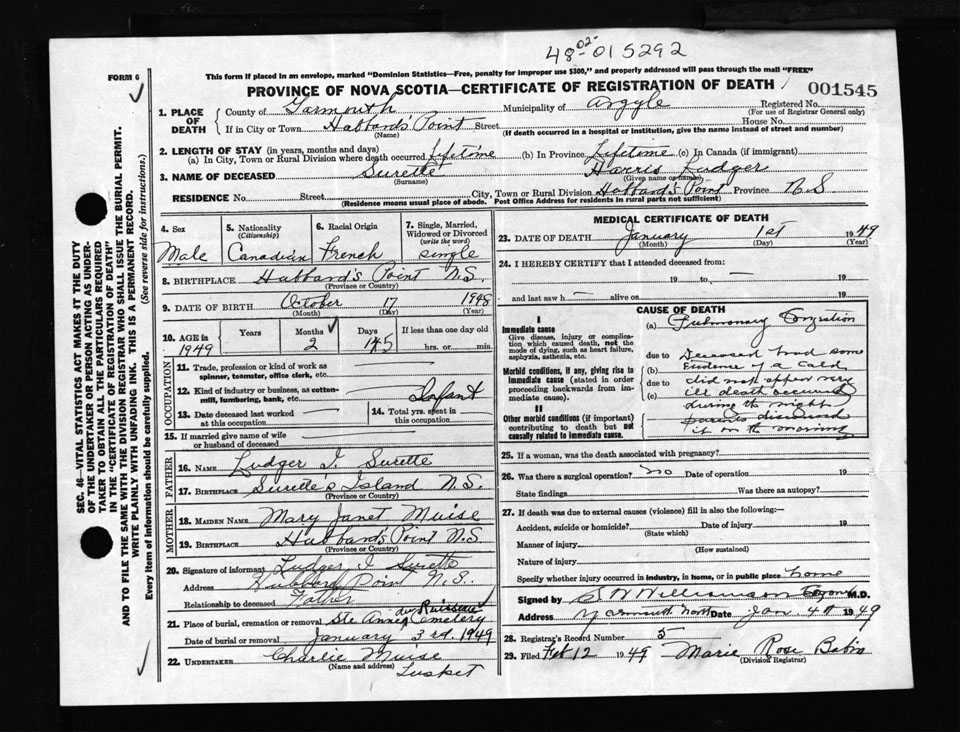 48-02-015292
FORM 6
This form if placed in an envelope, marked "Dominion Statistics—Free, penalty for improper use $300," and properly addressed will pass through the mail "FREE"
PROVINCE OF NOVA SCOTIA—CERTIFICATE OF REGISTRATION OF DEATH
001545
1. PLACE OF DEATH
County of Yarmouth Municipality of Argyle Registered No.
(For use of Registrar General only)
If in City or Town Habbard's Point Street House No.
(Name) (If death occurred in a hospital or institution, give the name instead of street and number)
2. LENGTH OF STAY (in years, months and days)
(a) In City, Town or Rural Division where death occurred Lifetime (b) In Province Lifetime (c) In Canada (if immigrant)
3. NAME OF DECEASED Surette Harris Ludger
(Surname) (Given name or names)
RESIDENCE No. Street City, Town or Rural Division Hebbard's Point Province N.S
(Residence means usual place of abode. Post Office Address for residents in rural parts not sufficient)
4. Sex Male
5. Nationality (Citizenship) Canadian
6. Racial Origin French
7. Single, Married, Widowed or Divorced (write the word) single
8. BIRTHPLACE Habbard's Point N.S.
(Province or Country)
9. DATE OF BIRTH October 17 1948
(Month) (Day) (Year)
10. AGE in 1949
Years Months 2 Days 15 If less than one day old hrs. or min
OCCUPATION
11. Trade, profession or kind of work as spinner, teamster, office clerk, etc.
12. Kind of industry or business, as cotton-mill, lumbering, bank, etc. Infant
13. Date deceased last worked at this occupation
14. Total yrs. spent in this occupation
15. If married give name of wife or husband of deceased
FATHER
16. NAME Ludger I. Surette
17. BIRTHPLACE Surette's Island N.S.
(Province or Country)
MOTHER
18. MAIDEN NAME Mary Janet Muise
19. BIRTHPLACE Hubbard's Point N.S.
(Province or Country)
20. Signature of informant Ludger I Surette
Address Hubbard Point N.S.
Relationship to deceased Father
21. Place of burial, cremation or removal Ste Anne du Ruisseau Cemetery
Date of burial or removal January 3rd. 1949
22. UNDERTAKER Charlie Muise
(Name and address) Tusket
MEDICAL CERTIFICATE OF DEATH
23. DATE OF DEATH January 1st 1949
(Month) (Day) (Year)
24. I HEREBY CERTIFY that I attended deceased from:
19 to — 19
and last saw h — alive on 19
CAUSE OF DEATH
I
Immediate cause
Give disease, injury or complication which caused death, not the mode of dying, such as heart failure, asphyxia, asthenia, etc.
Morbid conditions, if any, giving rise to immediate cause (stated in order proceeding backwards from immediate cause).
II
Other morbid conditions (if important) contributing to death but not causally related to immediate cause.
(a) Pulmonary Congestion
due to Deceased had some
(b) Evidence of a cold
due to did not appear very
(c) ill death occurred
during the night
parents discovered
it in the morning
25. If a woman, was the death associated with pregnancy?
26. Was there a surgical operation? no Date of operation 19
State findings Was there an autopsy?
27. If death was due to external causes (violence) fill in also the following:—
Accident, suicide or homicide? Date of injury 19
(State which)
Manner of injury
(How sustained)
Nature of injury
Specify whether injury occurred in industry, in home, or in public place home
Signed by Williamson Coroner M.D.
Address Yarmouth North Date Jan 4th 1949
28. Registrar's Record Number 5
29. Filed Feb 12 1949 Marie Rose Babin
(Division Registrar)
SEC. 46—VITAL STATISTICS ACT MAKES IT THE DUTY
OF THE UNDERTAKER OR PERSON ACTING AS UNDER-
TAKER TO OBTAIN ALL THE PARTICULARS REQUIRED
IN THE "CERTIFICATE OF REGISTRATION OF DEATH"
AND TO FILE THE SAME WITH THE DIVISION REGISTRAR WHO SHALL ISSUE THE BURIAL PERMIT.
WRITE PLAINLY WITH UNFADING INK. THIS IS A PERMANENT RECORD.
Every item of information should be carefully supplied. (See reverse side for instructions.)